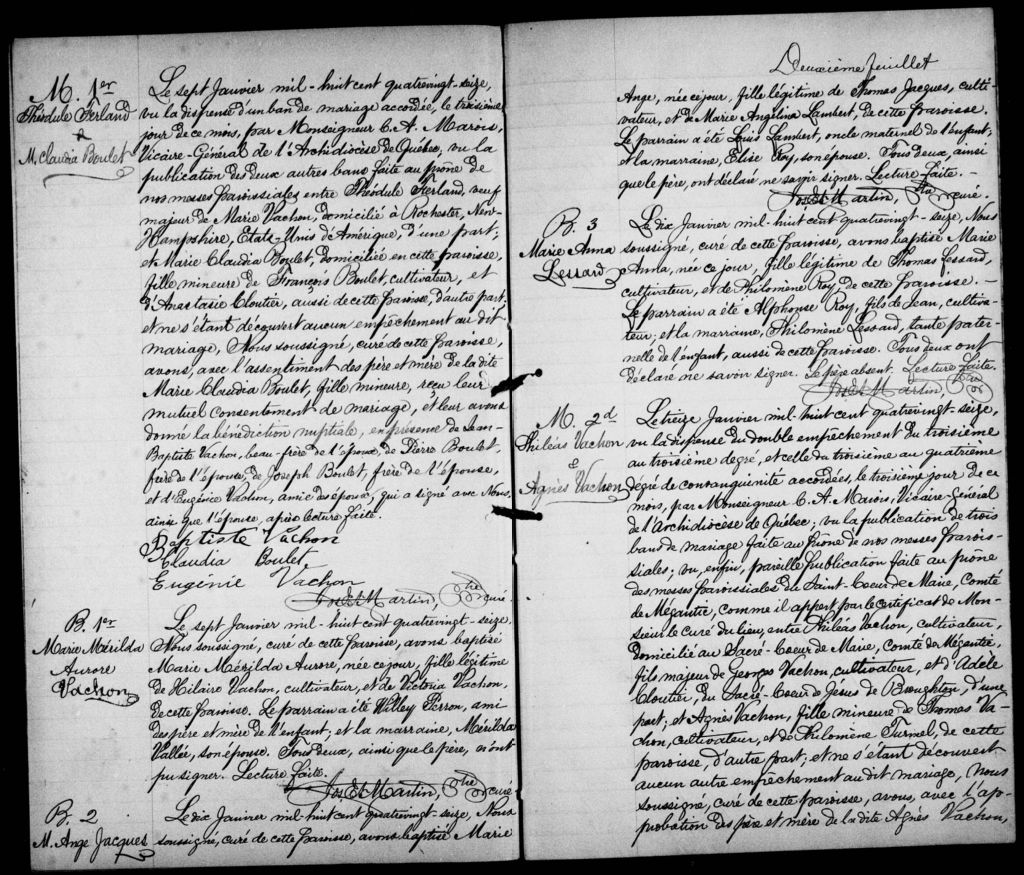 M. 1er
Théodule Ferland
&
M. Claudia Boulet
Le sept Janvier mil-huit cent quatrevingt-seize,
vu la dispense d'un ban de mariage accordée, le troisième
jour de ce mois, par Monseigneur C. A. Marois,
Vicaire-Général de l'Archidiocèse de Québec, vu la
publication des deux autres bans faite au prône de
nos messes paroissiales entre Théodule Ferland, veuf
majeur de Marie Vachon, domicilié à Rochester, New-
Hampshire, Etats-Unis d'Amérique, d'une part;
et Marie Claudia Boulet, domiciliée en cette paroisse,
fille mineure de François Boulet, cultivateur, et
d'Anastasie Cloutier, aussi de cette paroisse, d'autre part;
et ne s'étant découvert aucun empêchement au dit
mariage, Nous soussigné, curé de cette paroisse,
avons, avec l'assentiment des père et mère de la dite
Marie Claudia Boulet, fille mineure, reçu leur
mutuel consentement de mariage, et leur avons
donné la bénédiction nuptiale, en présence de Jean-
Baptiste Vachon, beau-frère de l'époux, de Pierre Boulet,
frère de l'épouse, de Joseph Boulet, frère de l'épouse,
et d'Eugénie Vachon, amie des époux, qui a signé avec Nous,
ainsi que l'épouse, après lecture faite.
Baptiste Vachon
Claudia Boulet
Eugénie Vachon
Jos. Et. Martin, Ptre curé.
B. 1er
Marie Mérilda
Aurore
Vachon
Le sept Janvier mil-huit cent quatrevingt-seize,
Nous soussigné, curé de cette paroisse, avons baptisé
Marie Mérilda Aurore, née ce jour, fille légitime
de Hilaire Vachon, cultivateur, et de Victoria Vachon,
de cette paroisse. Le parrain a été Willey Perron, ami
des père et mère de l'enfant; et la marraine, Mérilda
Vallée, son épouse. Tous deux, ainsi que le père, n'ont
pu signer. Lecture faite.
Jos. Et. Martin, Ptre curé
B. 2
M. Ange Jacques
Le dix Janvier mil-huit cent quatrevingt-seize, Nous
soussigné, curé de cette paroisse, avons baptisé Marie
Deuxième feuillet
Ange, née ce jour, fille légitime de Thomas Jacques, culti-
vateur, et de Marie Angélina Lambert, de cette paroisse.
Le parrain a été Louis Lambert, oncle maternel de l'enfant;
et la marraine, Elise Roy, son épouse. Tous deux, ainsi
que le père, ont déclaré ne savoir signer. Lecture faite. -
Jos. Et. Martin, Ptre curé.
B. 3
Marie Anna
Lessard
Le dix Janvier mil-huit cent quatrevingt-seize, Nous
soussigné, curé de cette paroisse, avons baptisé Marie
Anna, née ce jour, fille légitime de Thomas Lessard,
cultivateur, et de Philomène Roy de cette paroisse. -
Le parrain a été Alphonse Roy, fils de Jean, cultiva-
teur; et la marraine, Philomène Lessard, tante pater-
nelle de l'enfant, aussi de cette paroisse. Tous deux ont
déclaré ne savoir signer. Le père absent. Lecture faite.
Jos. Et. Martin, Ptre
M. 2d
Philéas Vachon
&
Agnès Vachon
Le treize Janvier mil-huit cent quatrevingt-seize,
vu la dispense du double empêchement du troisième
au troisième degré, et celle du troisième au quatrième
degré de consanguinité accordées, le troisième jour de ce
mois, par Monseigneur C. A. Marois, Vicaire-Général
de l'Archidiocèse de Québec; vu la publication de trois
bans de mariage faite au prône de nos messes parois-
siales; vu, enfin, pareille publication faite au prône
des messes paroissiales du Saint-Coeur de Marie, Comté
de Mégantic, comme il appert par le certificat de Mon-
sieur le Curé du lieu, entre Philéas Vachon, cultivateur,
domicilié au Sacré-Coeur de Marie, Comté de Mégantic,
fils majeur de Georges Vachon, cultivateur, et d'Adèle
Cloutier, du Sacré-Coeur de Jésus de Broughton, d'une
part; et Agnès Vachon, fille mineure de Thomas Va-
chon, cultivateur, et de Philomène Turmel, de cette
paroisse, d'autre part; et ne s'étant découvert
aucun autre empêchement au dit mariage, Nous
soussigné, curé de cette paroisse, avons, avec l'ap-
probation des père et mère de la dite Agnès Vachon,